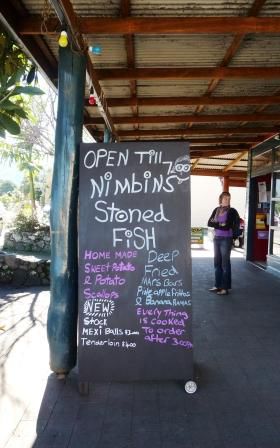 OPEN Till 7:00
Nimbins
Stoned
FiSH
HOME MADE
Sweet Potato
& Potato
Scallops
NEW
Stock
MEXI Balls
Tenderloin $4.00
Deep
Fried
Mars Bars
Pineapple Fritters
& Banana
Every Thing
is cooked
To order
after 3:00PM